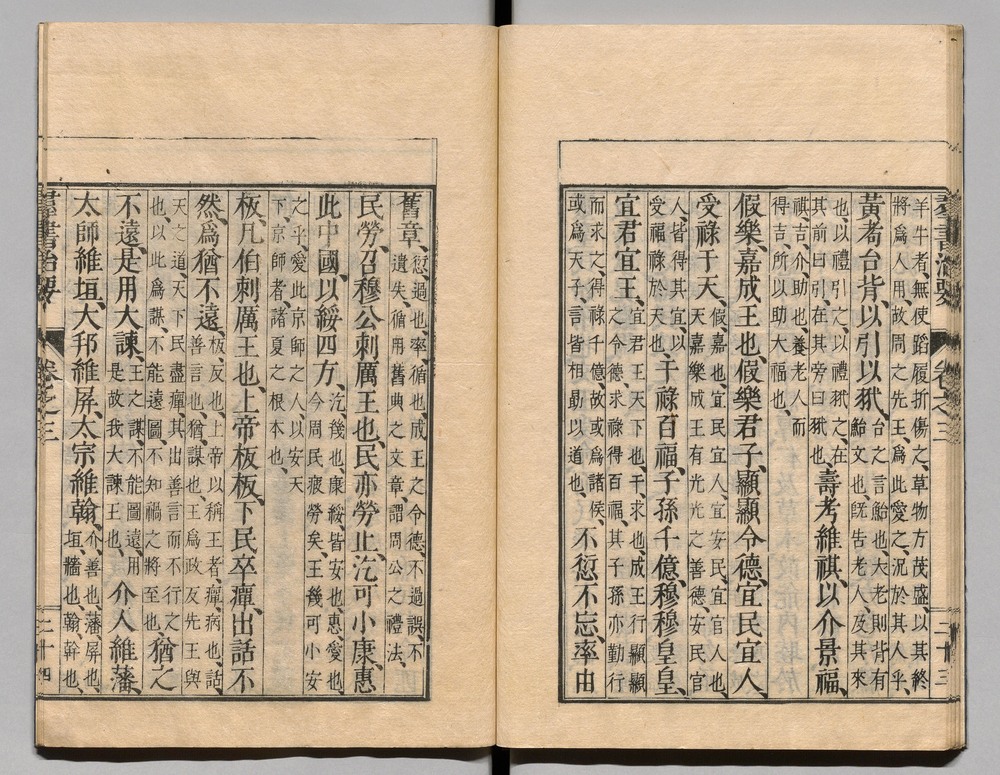 羣書治要 卷之三 二十三
羊牛者、無使蹈履折傷之、草物方茂盛、以其終
將爲人用、故周之先王、爲此愛之、況於其人乎、
黃耇台背、以引以翼、
台之言鮐也、大老則背有
鮐文也、既告老人及其來
也、以禮引之、以禮翼之、在
其前曰引、在其旁曰翼也、
壽考維祺、以介景福、
祺、吉、介、助也、養老人而
得吉、所以助大福也、
假樂、嘉成王也、假樂君子、顯顯令德、宜民宜人、
受祿于天、
假、嘉也、宜民人、宜安民、宜官人也、
天嘉樂成王有光光之善德、安民官
人、皆得其宜、以
受福祿於天也、
干祿百福、子孫千億、穆穆皇皇、
宜君宜王、
宜君王天下也、干、求也、成王行顯顯
之令德、求祿得百福、其子孫亦勤行
而求之、得祿千億、故或爲諸侯、
或爲天子、言皆相勗以道也、
不愆不忘、率由
舊章、
愆、過也、率、循也、成王之令德、不過誤、不
遺失、循用舊典之文章、謂周公之禮法、
民勞、召穆公刺厲王也、民亦勞止、汔可小康、惠
此中國、以綏四方、
汔、幾也、康、綏、皆安也、惠、愛也、
今周民疲勞矣、王幾可小安
之乎、愛此京師之人、以安天
下、京師者、諸夏之根本也、
板、凡伯刺厲王也、上帝板板、下民卒癉、出話不
然、爲猶不遠、
板、反也、上帝以稱王者、癉、病也、話、
善言也、猶、謀也、王爲政反先王與
天之道、天下民盡癉、其出善言而不行之
也、以此爲謀、不能遠圖、不知禍之將至也、
猶之
不遠、是用大諫、
王之謀不能圖遠、用
是故我大諫王也、
介人維藩、
太師維垣、大邦維屏、太宗維翰、
介、善也、藩、屏也、
垣、牆也、翰、幹也、
羣書治要 卷之三 二十四